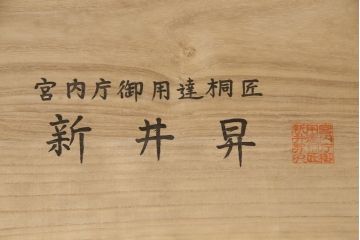 宮内庁御用達桐匠
新井昇